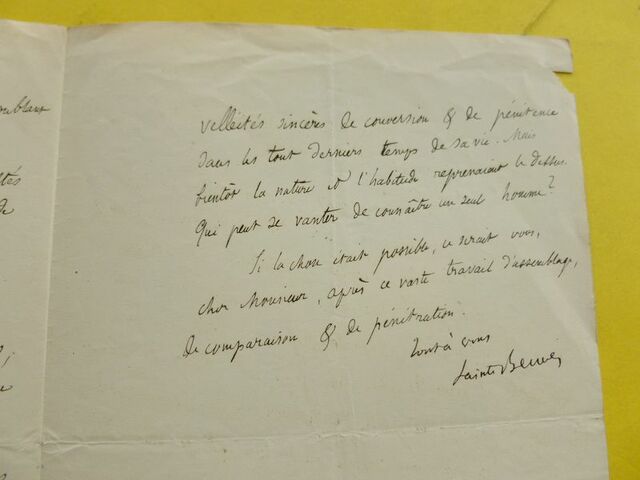 velleités sincères de conversion & de pénitence
dans les tout derniers temps de sa vie. Mais
bientôt la nature & l'habitude reprenaient le dessus.
Qui peut se vanter de connaître un seul homme?
Si la chose était possible, ce serait vous,
cher Monsieur, après ce vaste travail d'assemblage,
de comparaison & de pénétration.
tout à vous
Sainte-Beuve